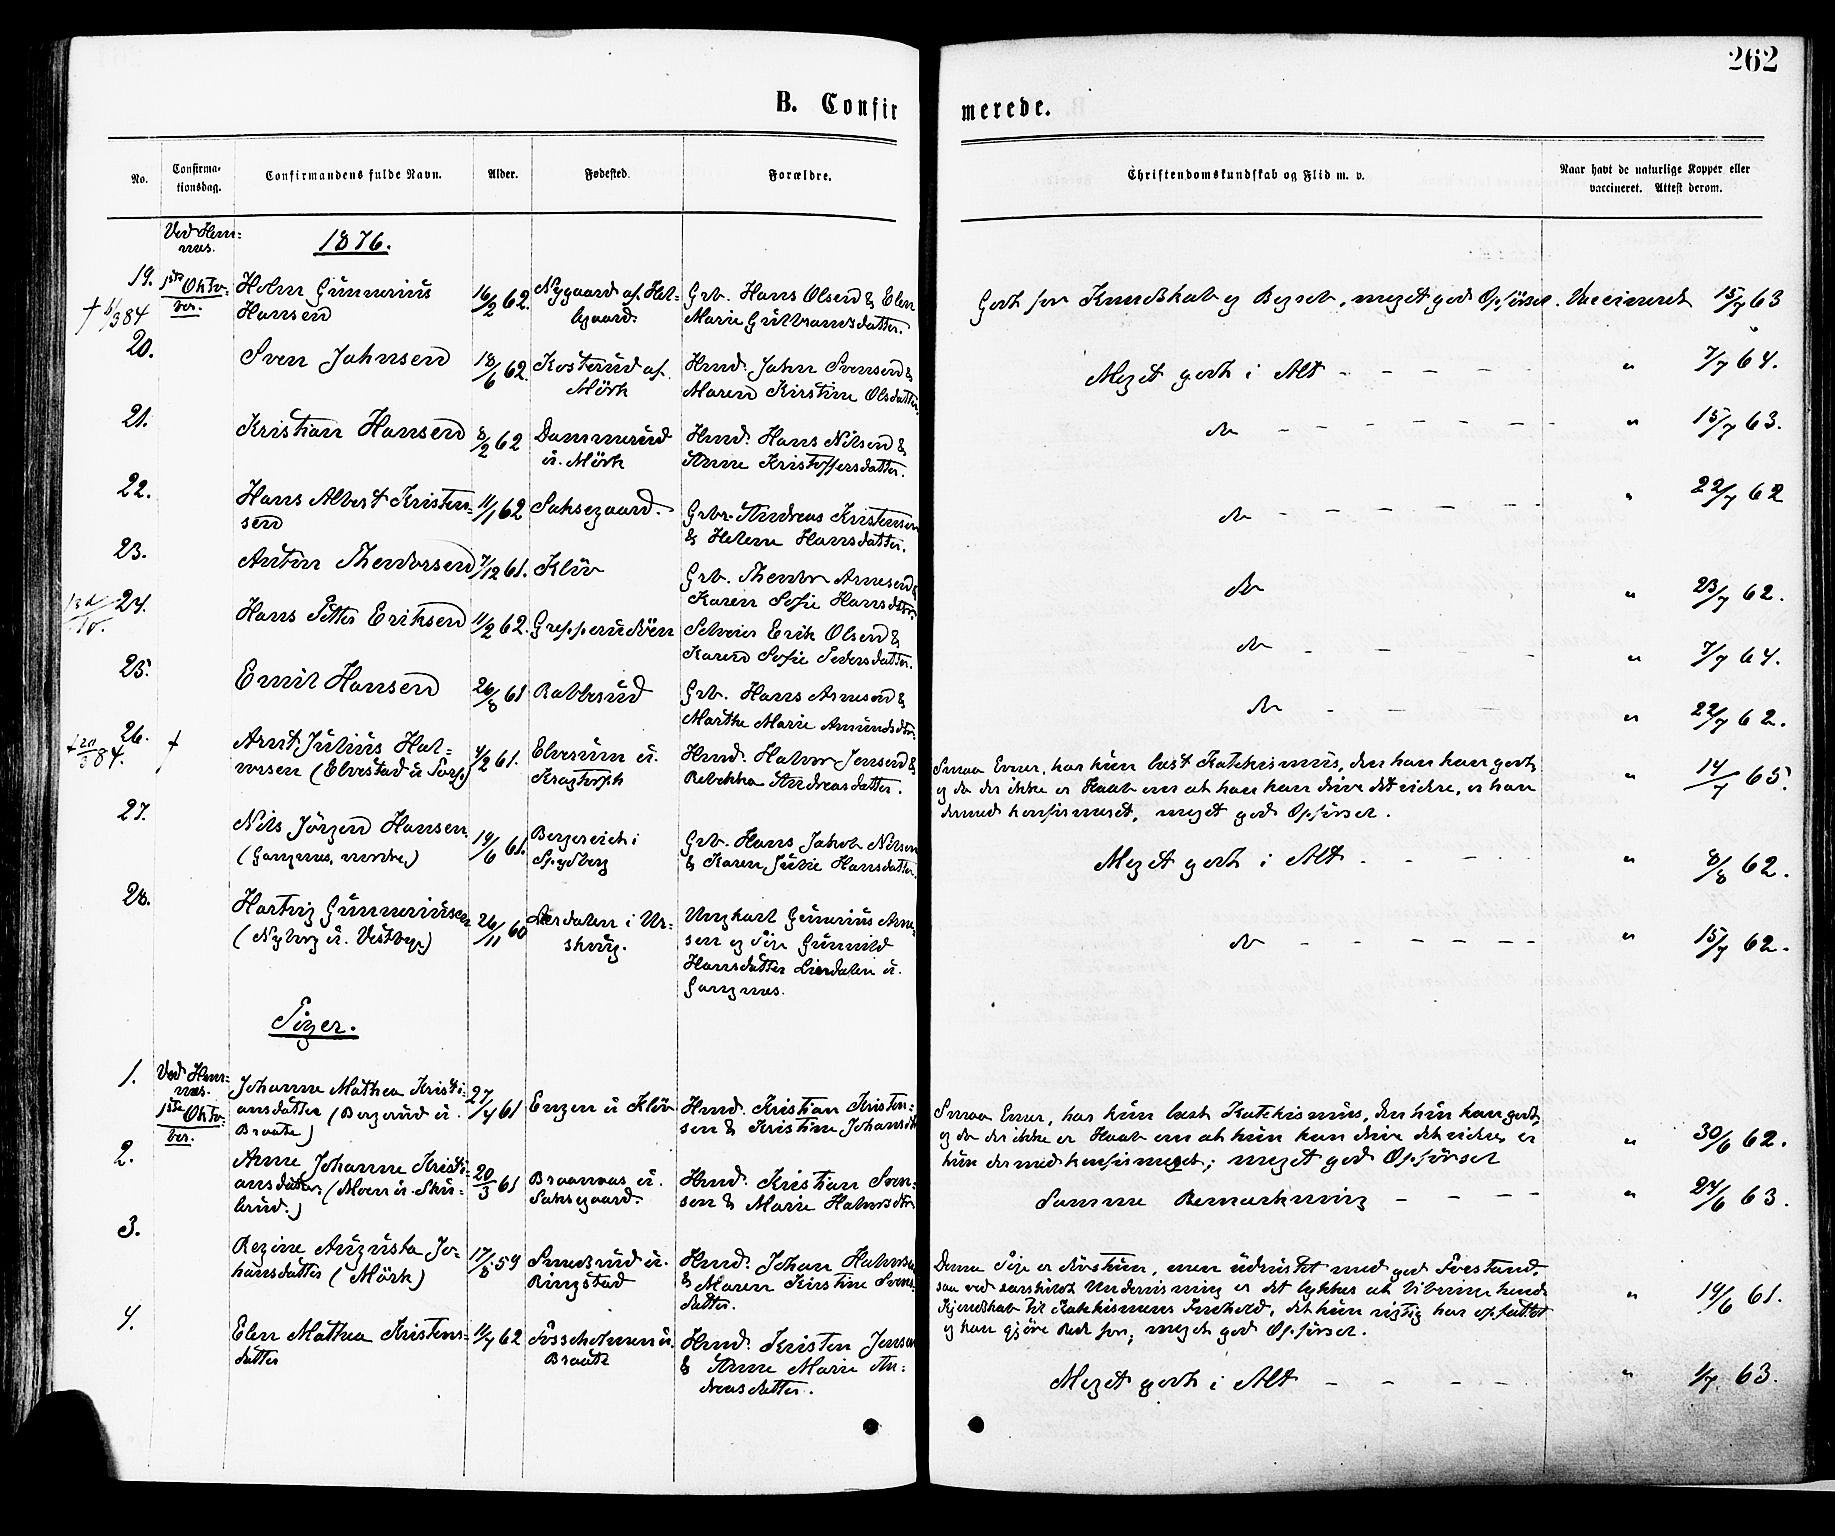 262
B. Confirmerede.
No. Confirmationsdag. Confirmandens fulde Navn. Alder. Fødested. Forældre. Christendomskundskab og Flid m. v. Naar havt de naturlige Kopper eller vaccineret. Attest derom.
Ved Hem=
nes.
1876.
19. 1ste Okto=
ber.
Holm Gunnerius
Hansen
16/2 62. Nygaard af Hel-
lgaard.
Grb. Hans Olsen & Elen
Marie Gulbransdatter.
Godt for Kundskab og Begreb, meget god Opførsel. Vaccineret 15/7 63
20. Sven Johnsen 18/6 62. Kosterud af
Mörk
Hmd. John Svensen &
Maren Kirstine Olsdatter
Meget godt i Alt - - - - - " 7/7 64.
21. Kristian Hansen 8/2 62 Dammerud
u. Mörk
Hmd. Hans Nilsen &
Anne Kristoffersdatter.
do - - - - - " 15/7 63.
22. Hans Albert Kristen=
sen
11/1 62 Saksegaard. Grbr. Andreas Kristensen
& Helene Hansdatter.
do - - - - - " 22/7 62
23. Anton Theodorsen 7/12 61. Klöv
Grb. Theodor Arnesen &
Karen Sofie Hansdtr.
do " 23/7 62.
24. Hans Petter Eriksen 11/2 62. Grepperudöen
Selveier Erik Olsen &
Karen Sofie Pedersdatter.
do - - - " 7/7 64.
25. Emil Hansen 26/8 61 Rabbesud
Grb. Hans Arnesen &
Marthe Marie Amundsdtr.
do - - - " 22/7 62.
26. Arnt Julius Hal=
vorsen (Elvestad u Torp)
4/2 61. Elvesum u.
Kragtorph
Hmd. Halvor Jensen &
Rebekka Andreasdatter.
Smaa Evner, har kun læst Katekismus, den han kan godt,
og da der ikke er Haab om at han kan drive det videre, er han
dermed konfirmeret, meget god Opførsel. " 14/7 65.
27. Nils Jörgen Hansen
(Gangnes, nordre)
19/6 61. Bergereich i
Spydberg
Grb. Hans Jakob Nilsen
& Karen Julie Hansdatter.
Meget godt i Alt - - - - " 8/8 62.
28. Hartvig Gunneriusen
(Nyborg u. Vestby)
26/11 60 Lierdalen i Ur-
skoug.
Ungkarl Gunerius Arne-
sen og Pige Gunnild
Hansdatter Lierdalen u.
Gangnes.
do - - - - - - " 15/7 62.
Piger.
1. Ved Hem=
nes.
1ste Okto-
ber.
Johanne Mathea Kristi-
ansdatter (Bergerud u.
Braate)
27/4 61 Engen u Klöv Hmd. Kristian Kristen=
sen & Kristine Johansdtr
Smaa Evner, har kun læst Katekismus, den hun kan godt,
og da der ikke er Haab om at hun kan drive det videre, er
hun dermed konfirmeret; meget god Opførsel " 30/6 62.
2. Anne Johanne Kristi-
ansdatter (Moen u. Sku-
lerud.)
20/3 61 Braanaas u.
Saksegaard.
Hmd. Kristian Sven=
sen & Marie Halvorsdtr
Samme Bemærkning - - - - " 24/6 63.
3. Regine Augusta Jo-
hansdatter (Mörk)
17/8 59 Smedsrud u.
Ringstad
Hmd. Johan Halvorsen
& Maren Kirstine Svens-
datter.
Denne Pige er døvstum, men udrustet med god Forstand,
saa ved særskildt Underviisning er det lykkes at bibringe hende
Kjendskab til Katekismens Indhold, det hun rigtig har opfattet
og kan gjöre Rede for; meget god Opførsel. " 19/6 61.
4. Elen Mathea Kristens-
datter
11/7 62 Fosseholmen u.
Braate
Hmd. Kristen Jensen
& Anne Marie An=
dreasdatter.
Meget godt i Alt - - - - " 1/7 63.